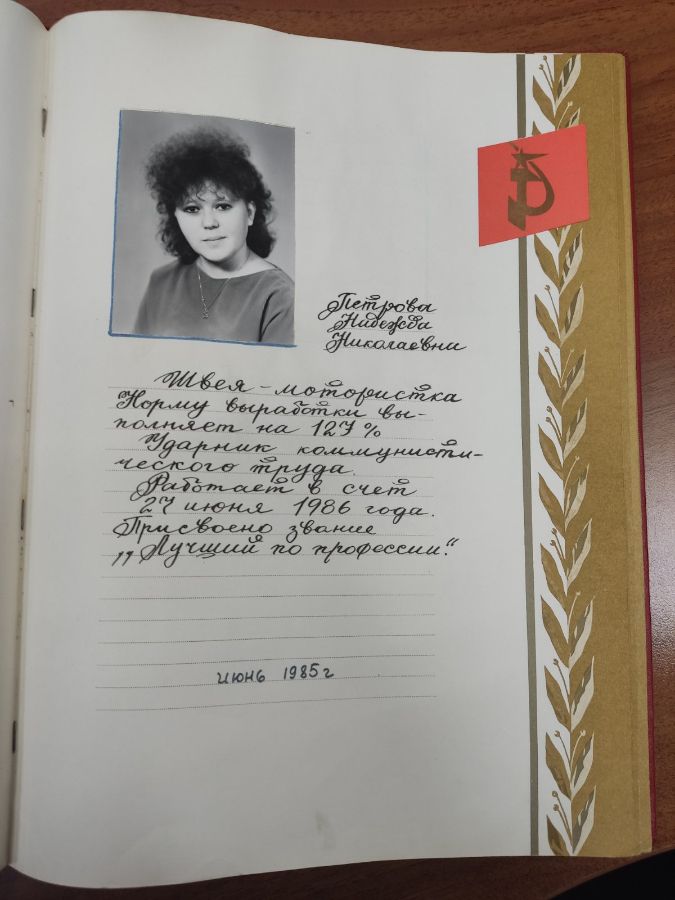 Петрова
Надежда
Николаевна
Швея - мотористка
Норму выработки вы-
полняет на 127 %
Ударник коммунисти-
ческого труда.
Работает в счет
27 июня 1986 года.
Присвоено звание
„Лучший по профессии".
июнь 1985 г